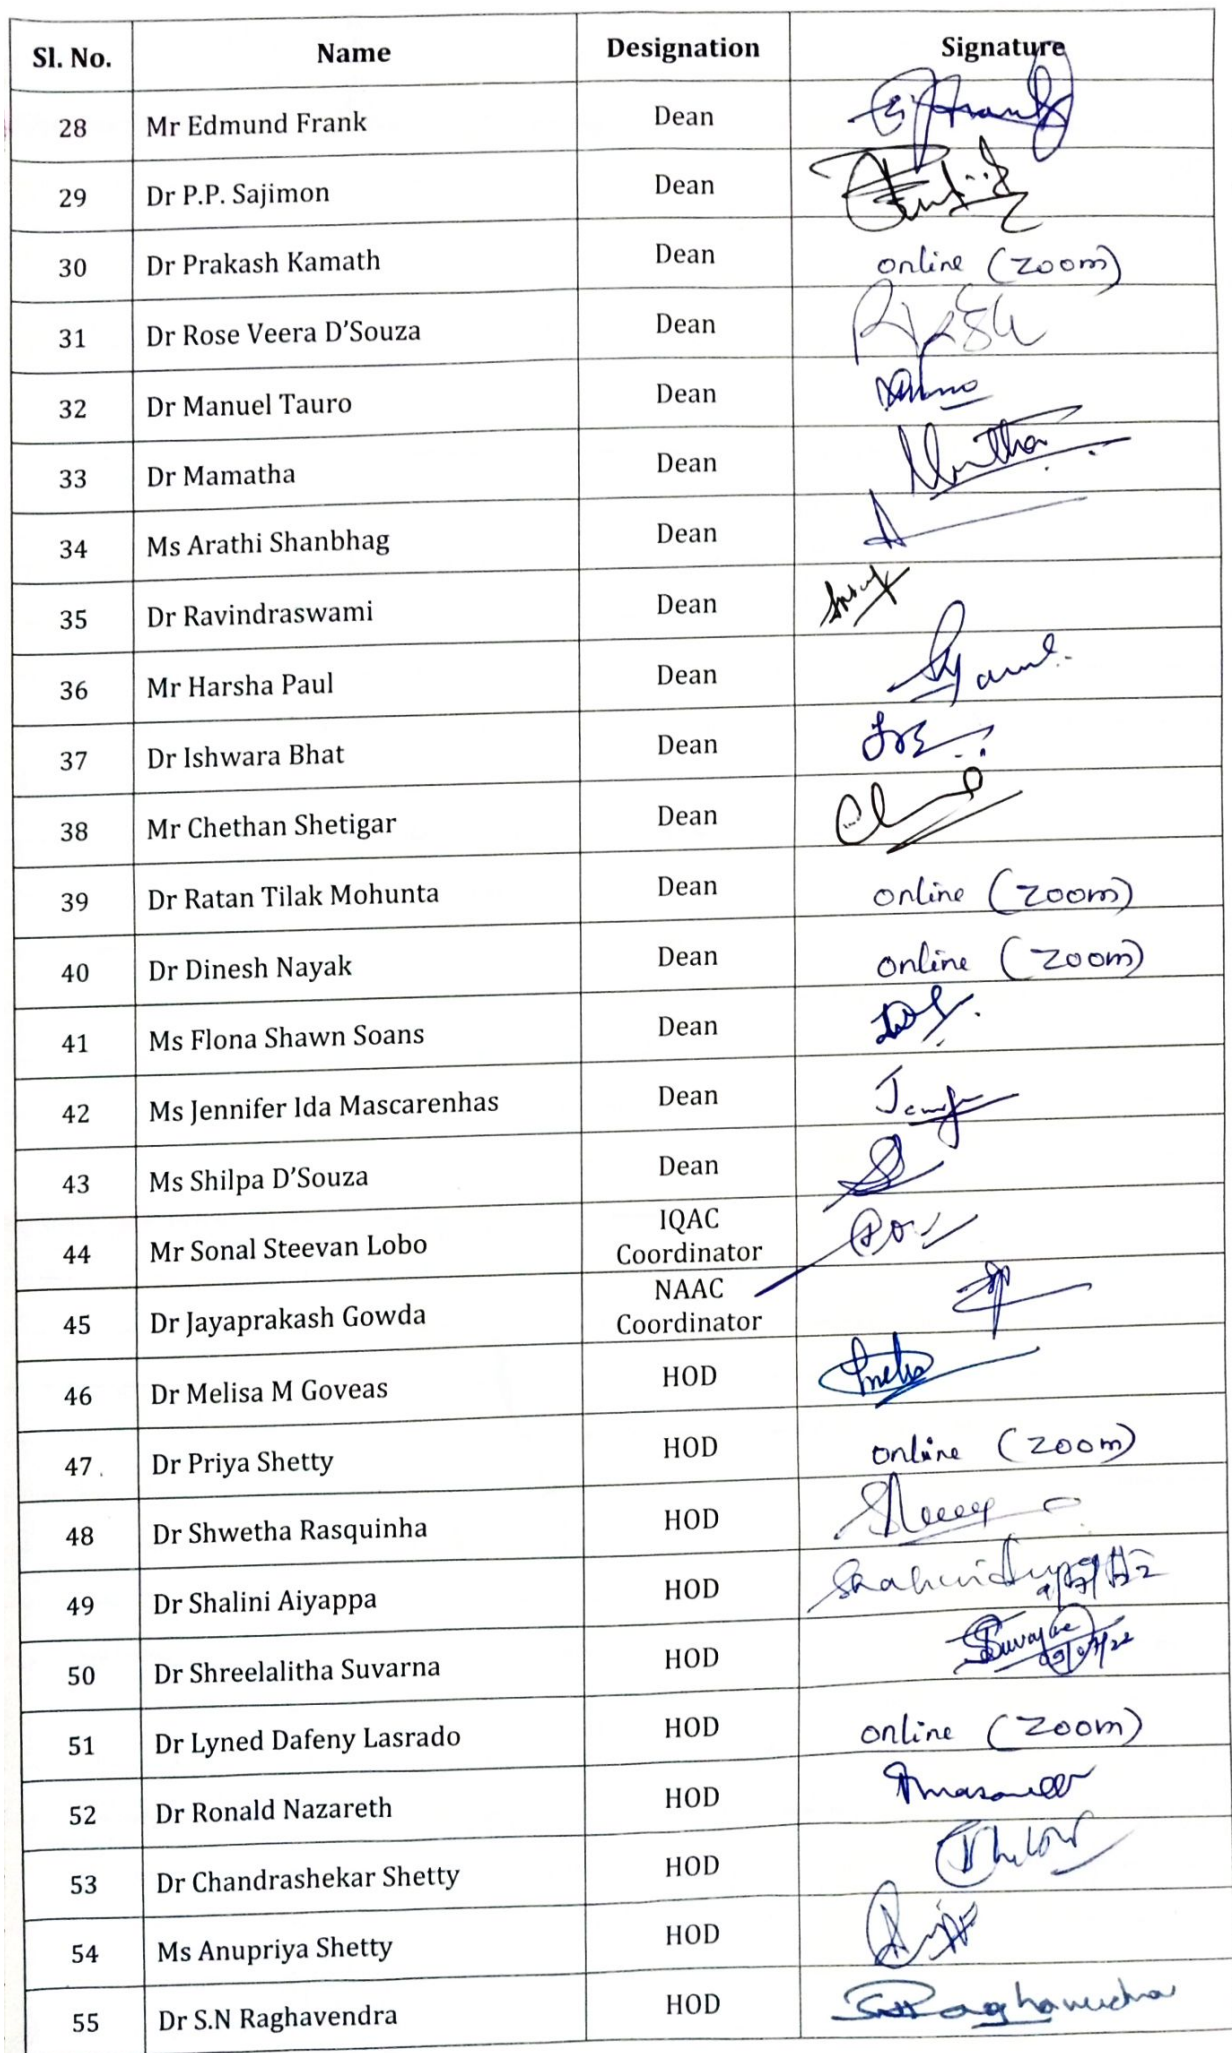 Sl. No. Name Designation Signature
28 Mr Edmund Frank Dean
29 Dr P.P. Sajimon Dean
30 Dr Prakash Kamath Dean online (zoom)
31 Dr Rose Veera D'Souza Dean
32 Dr Manuel Tauro Dean
33 Dr Mamatha Dean
34 Ms Arathi Shanbhag Dean
35 Dr Ravindraswami Dean
36 Mr Harsha Paul Dean
37 Dr Ishwara Bhat Dean
38 Mr Chethan Shetigar Dean
39 Dr Ratan Tilak Mohunta Dean online (zoom)
40 Dr Dinesh Nayak Dean online (zoom)
41 Ms Flona Shawn Soans Dean
42 Ms Jennifer Ida Mascarenhas Dean
43 Ms Shilpa D'Souza Dean
44 Mr Sonal Steevan Lobo IQAC
Coordinator
45 Dr Jayaprakash Gowda NAAC
Coordinator
46 Dr Melisa M Goveas HOD
47 Dr Priya Shetty HOD online (zoom)
48 Dr Shwetha Rasquinha HOD
49 Dr Shalini Aiyappa HOD
50 Dr Shreelalitha Suvarna HOD
51 Dr Lyned Dafeny Lasrado HOD online (zoom)
52 Dr Ronald Nazareth HOD
53 Dr Chandrashekar Shetty HOD
54 Ms Anupriya Shetty HOD
55 Dr S.N Raghavendra HOD